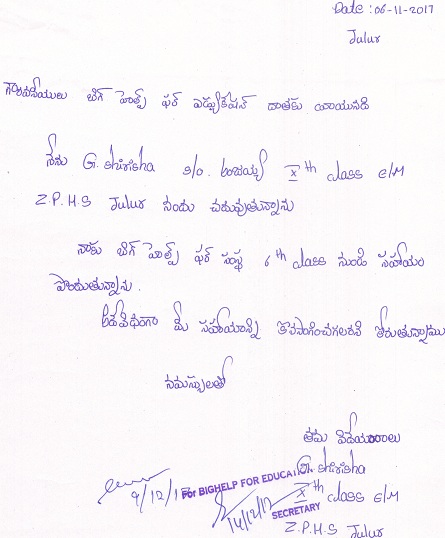 Date : 06-11-2017
Julur
గౌరవనీయులు బిగ్ హెల్ప్ ఫర్ ఎడ్యుకేషన్ దాతకు వ్రాయునది
నేను G. shirisha D/O. అంజయ్య X th class E/M
Z.P.H.S Julur నందు చదువుతున్నాను
నాకు బిగ్ హెల్ప్ ఫర్ సంస్థ 6 th class నుండి సహాయం
పొందుతున్నాను.
అదేవిధంగా మీ సహాయాన్ని కొనసాగించగలరని కోరుతున్నాము
నమస్సులతో
తమ విదేయురాలు
G. shirisha
X th class E/M
Z.P.H.S Julur
9/12/17
For BIGHELP FOR EDUCATION
14/12/17
SECRETARY